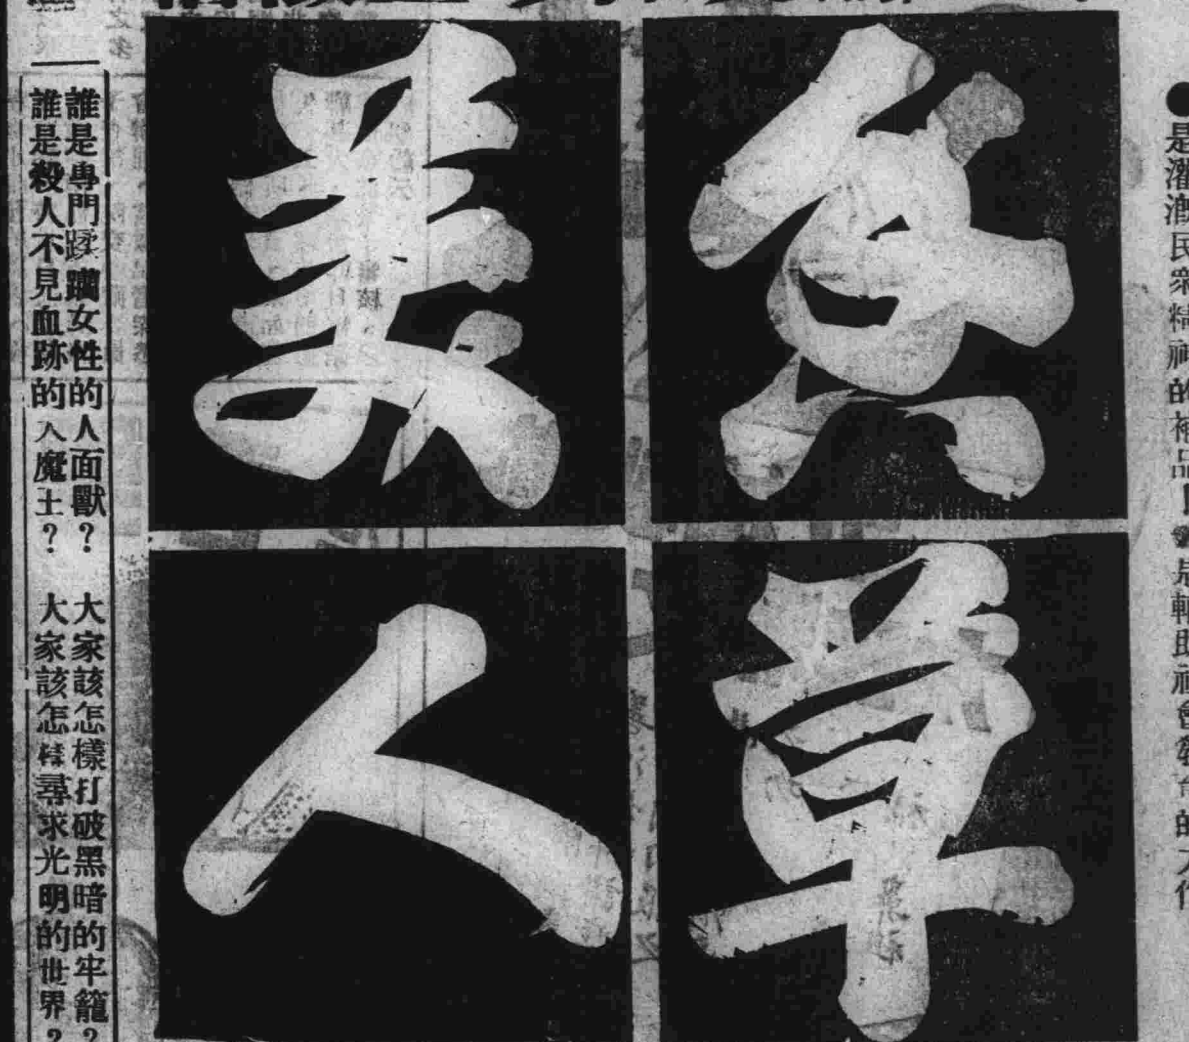 ●是灌漑民衆精神的補品！●是輔助社會敎育的大作
香草
美人
誰是專門蹂躪女性的人面獸？ 大家該怎樣打破黑暗的牢籠？
誰是殺人不見血跡的人魔王？ 大家該怎樣尋求光明的世界？